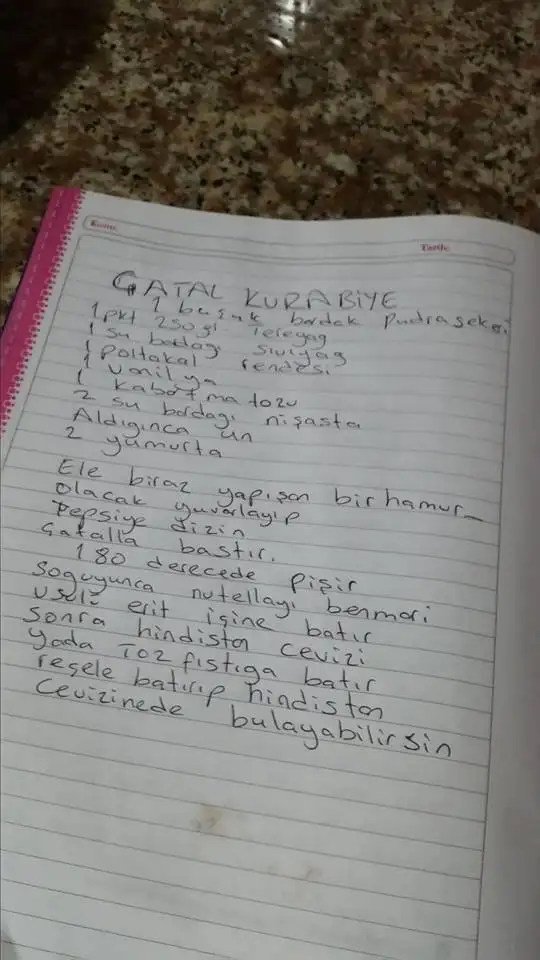 Konu:
Tarih:
ÇATAL KURABİYE
1 buçuk bardak pudraşekeri
1 pkt 250 gr Tereyag
1 su bardagı sıvıyag
1 Portakal rendesi
1 vanilya
1 kabartma tozu
2 su bardagı nişasta
Aldıgınca un
2 yumurta
Ele biraz yapışan bir hamur
olacak yuvarlayıp
Tepsiye dizin
Çatalla bastır.
180 derecede pişir
Soguyunca nutellayı benmari
usulü erit içine batır
sonra hindistan cevizi
yada Toz fıstıga batır
reçele batırıp hindistan
Cevizinede bulayabilirsin